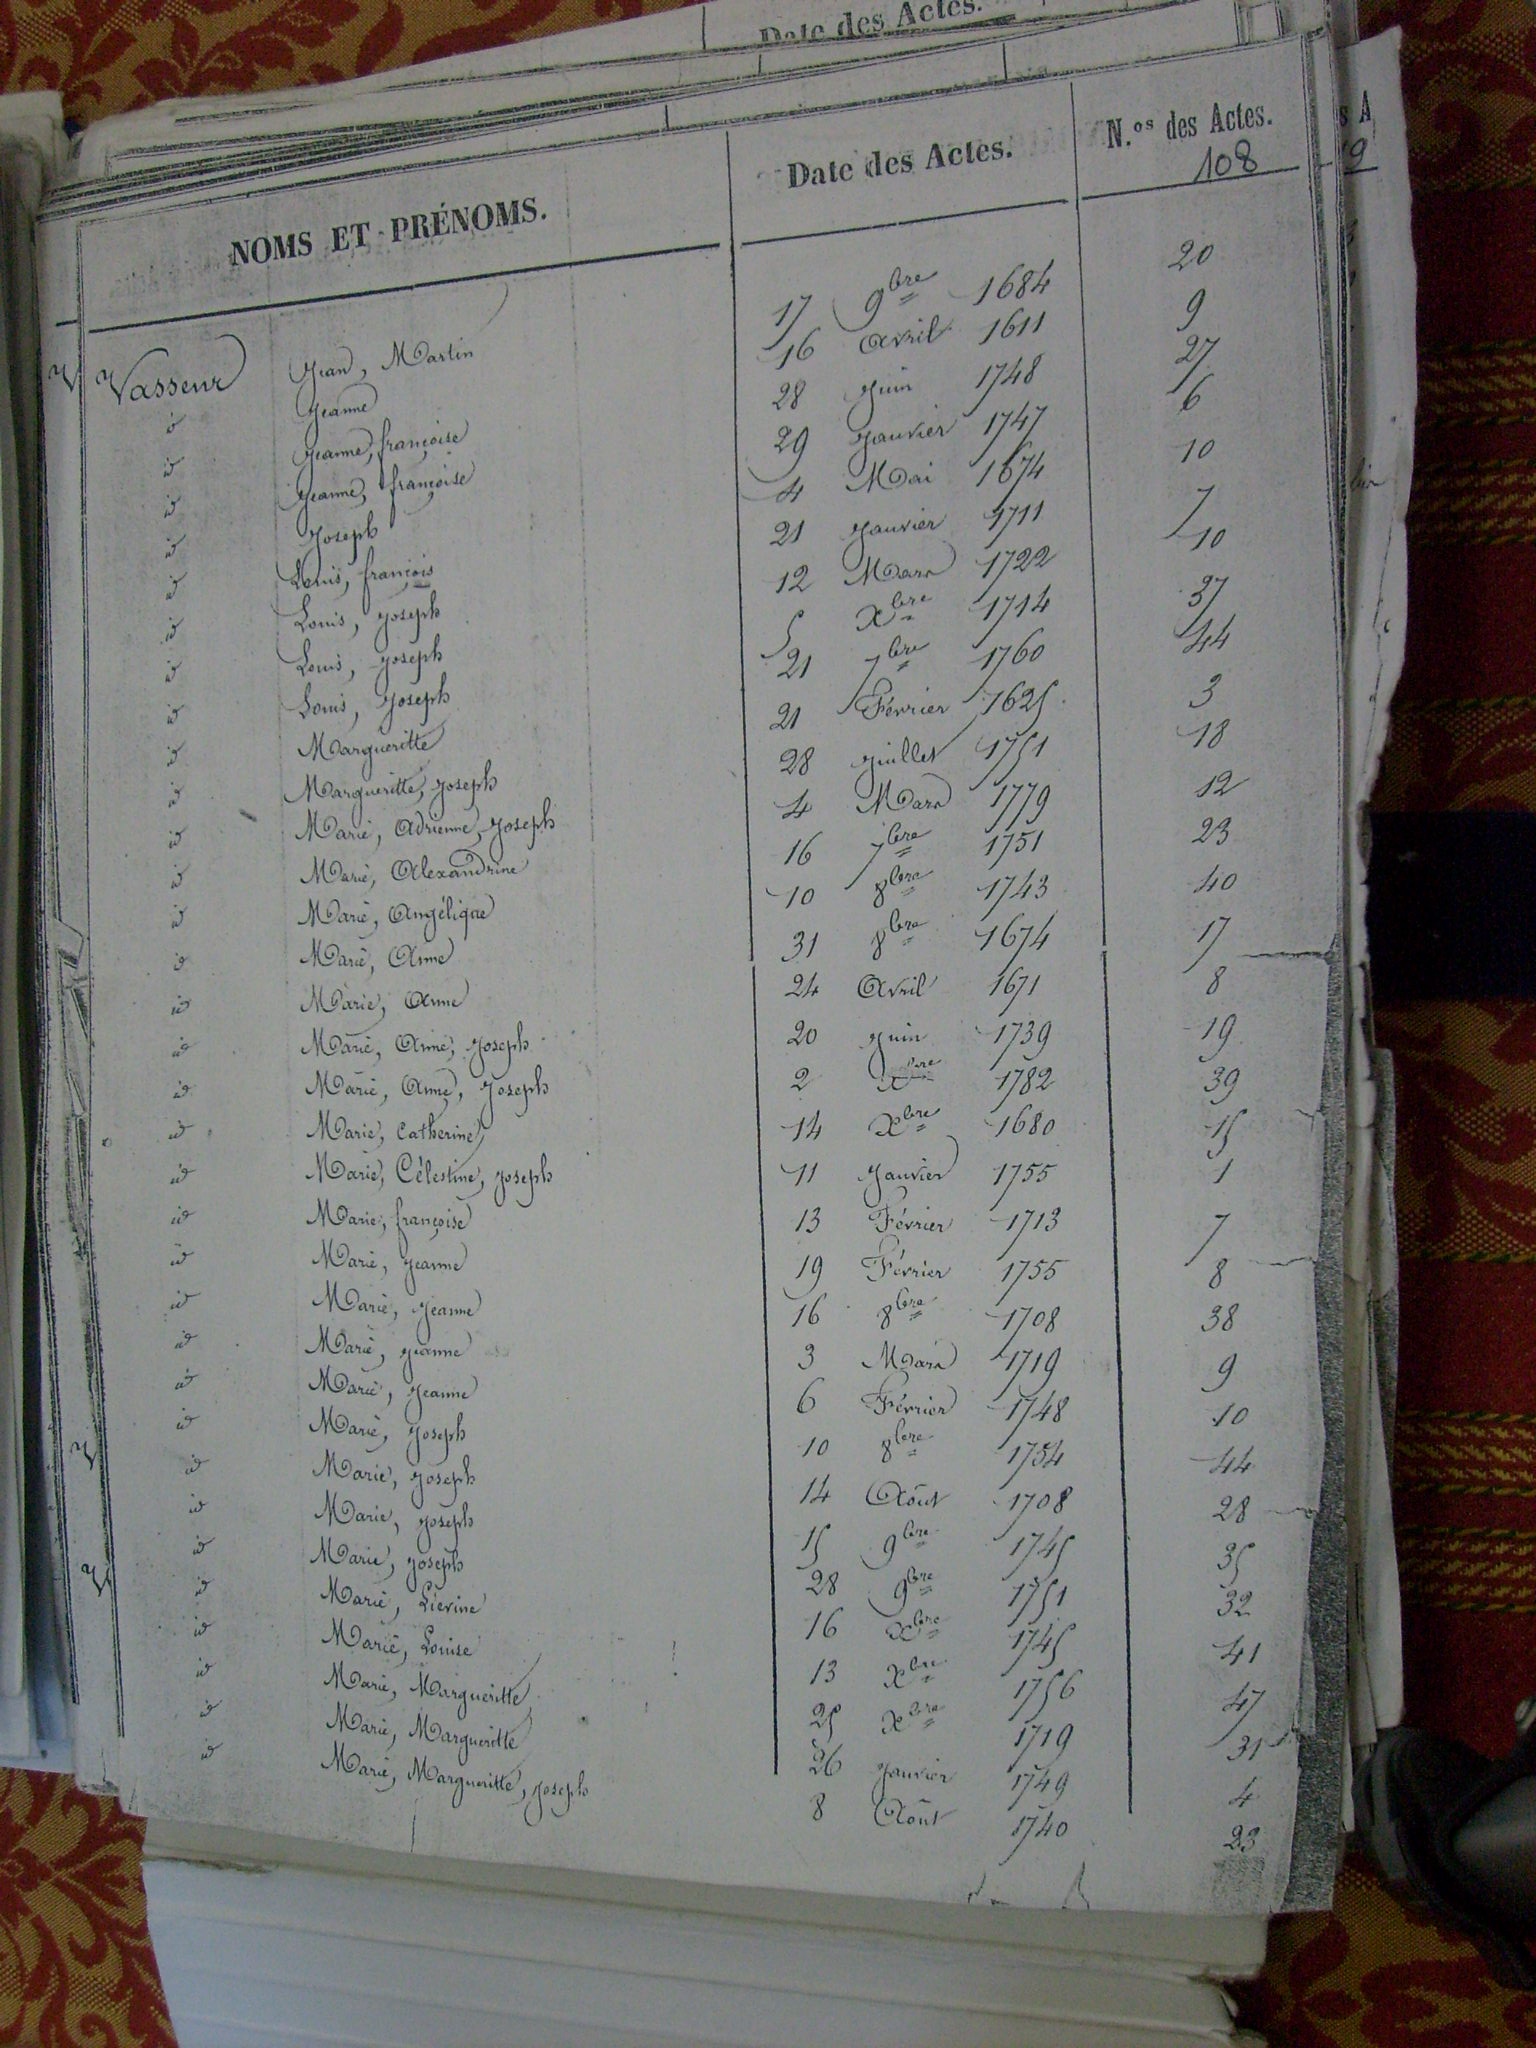 Date des Actes.
s A
NOMS ET PRÉNOMS. Date des Actes. N.os des Actes.
108
Vasseur Jean, Martin 17 9bre 1684 20
id Jeanne 16 Avril 1611 9
id Jeanne, françoise 28 Juin 1748 27
id Jeanne, françoise 29 Janvier 1747 6
id Joseph 4 Mai 1674 10
id Louis, françois 21 Janvier 1711 7
id Louis, Joseph 12 Mars 1722 10
id Louis, Joseph 5 Xbre 1714 37
id Louis, Joseph 21 7bre 1760 44
id Margueritte 21 Février 1625 3
id Margueritte, Joseph 28 Juillet 1751 18
id Marie, Adrienne, Joseph 4 Mars 1779 12
id Marie, Alexandrine 16 7bre 1751 23
id Marie, Angélique 10 8bre 1743 40
id Marie, Anne 31 8bre 1674 17
id Marie, Anne 24 Avril 1671 8
id Marie, Anne, Joseph 20 Juin 1739 19
id Marie, Anne, Joseph 2 Xbre 1782 39
id Marie, Catherine 14 Xbre 1680 15
id Marie, Célestine, Joseph 11 Janvier 1755 1
id Marie, françoise 13 Février 1713 7
id Marie, Jeanne 19 Février 1755 8
id Marie, Jeanne 16 8bre 1708 38
id Marie, Jeanne 3 Mars 1719 9
id Marie, Jeanne 6 Février 1748 10
id Marie, Joseph 10 8bre 1754 44
id Marie, Joseph 14 Août 1708 28
id Marie, Joseph 15 9bre 1745 35
id Marie, Joseph 28 9bre 1751 32
id Marie, Liévine 16 Xbre 1745 41
id Marie, Louise 13 Xbre 1756 47
id Marie, Margueritte 25 Xbre 1719 31
id Marie, Margueritte 26 Janvier 1749 4
id Marie, Margueritte, Joseph 8 Août 1740 23